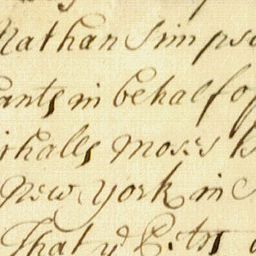 Nathan Simps
ants in behalf of
rhalls Moses
New York in
That yᵉ Petrs